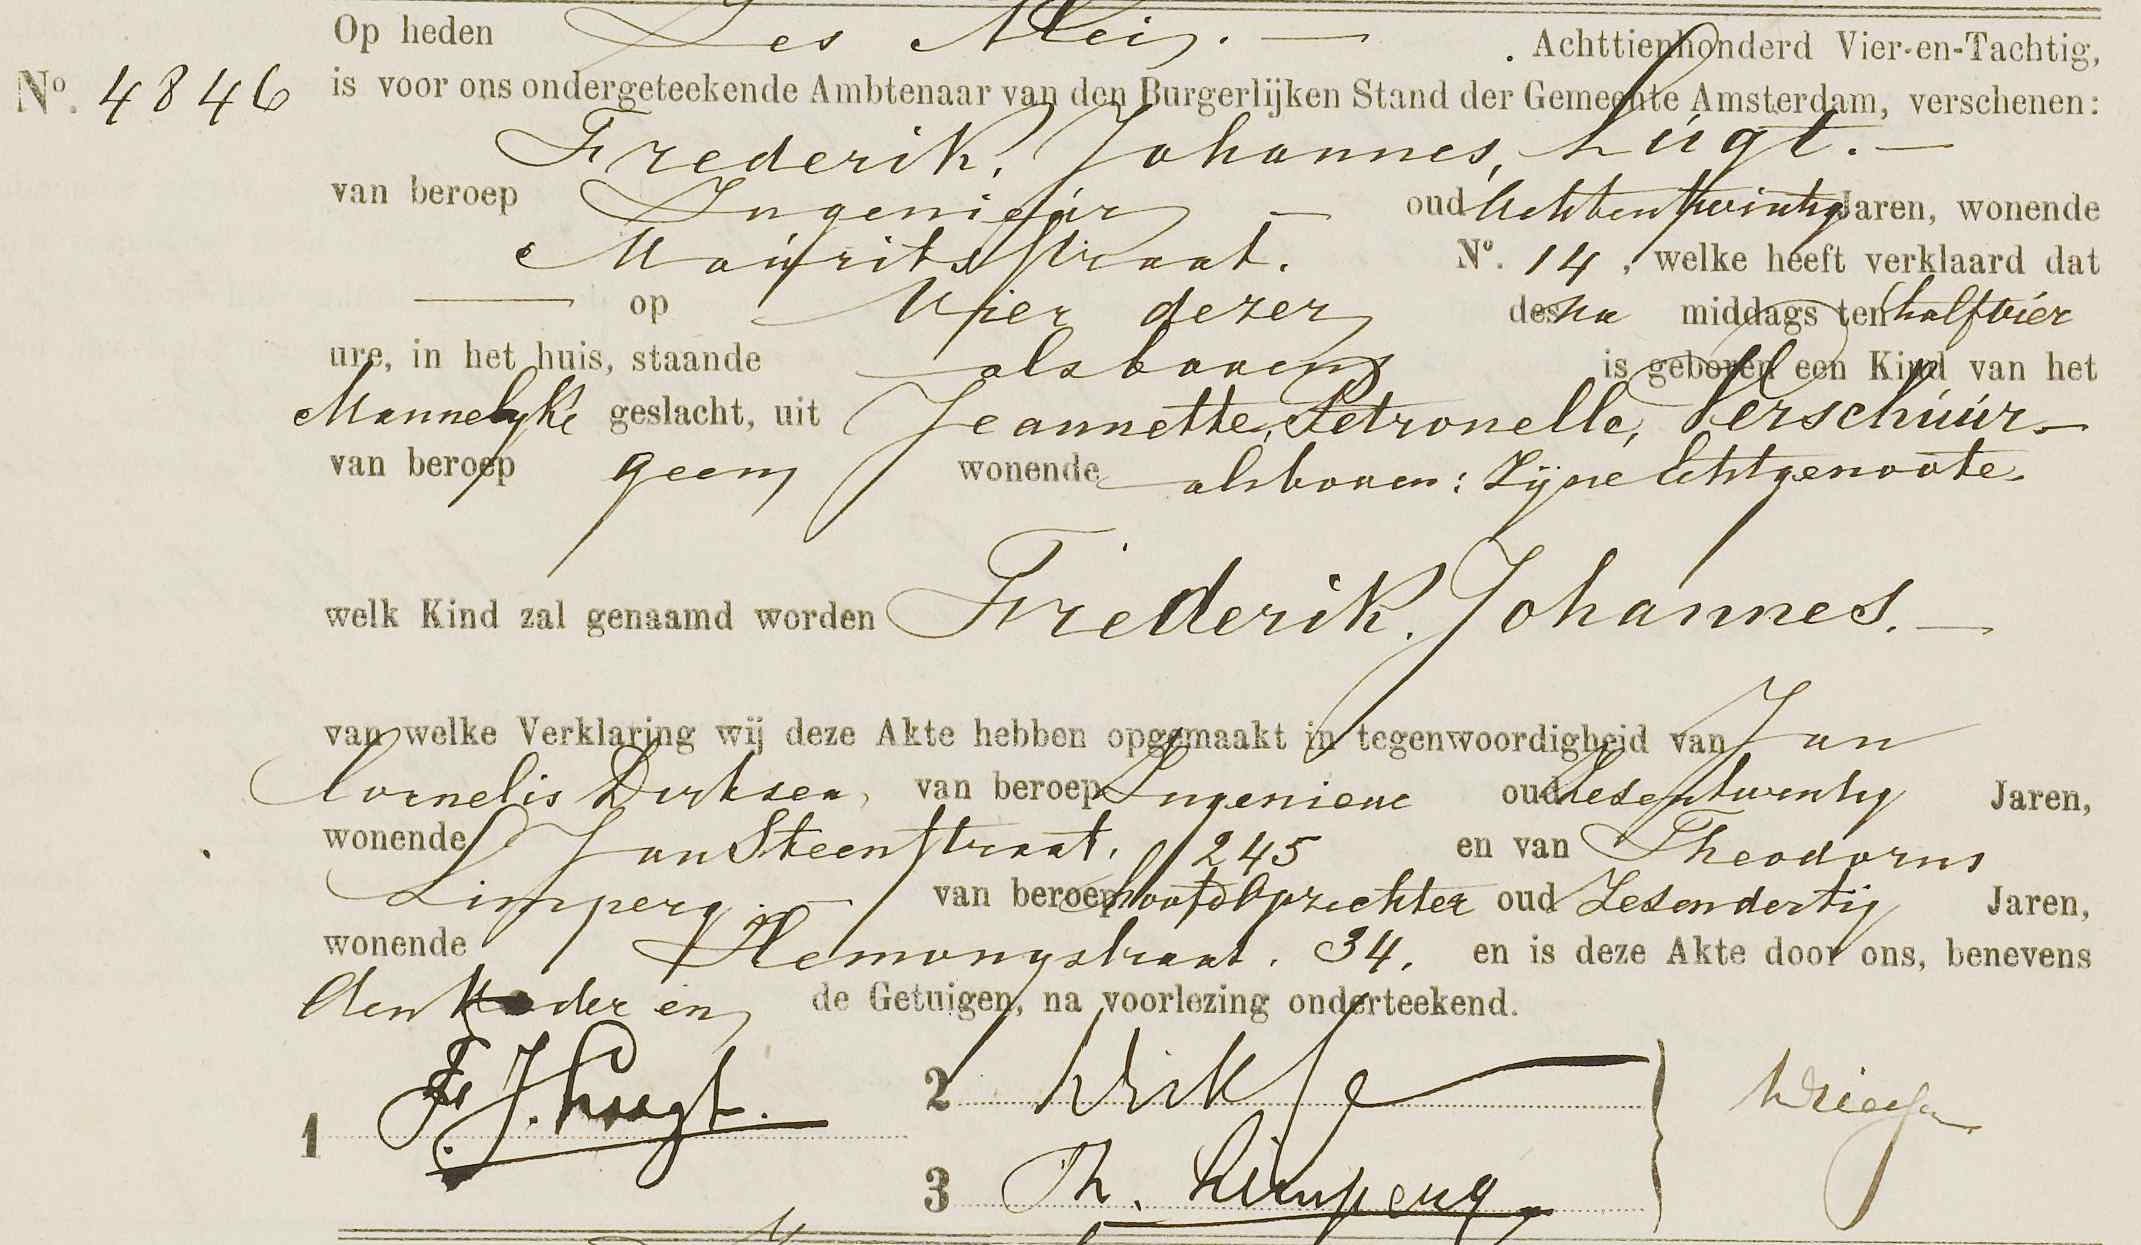 Op heden Zes Mei. — . Achttienhonderd Vier-en-Tachtig,
No. 4846 is voor ons ondergeteekende Ambtenaar van den Burgerlijken Stand der Gemeente Amsterdam, verschenen:
Frederik, Johannes, Lugt. —
van beroep Ingenieur — oud Achtentwintig Jaren, wonende
Mauritsstraat. No. 14, welke heeft verklaard dat
— op Vier dezer des na middags ten half vier
ure, in het huis, staande alsboven is geboren een Kind van het
Mannelyke geslacht, uit Jeannette, Petronella, Verschuur —
van beroep geen wonende alsboven: Zijne Echtgenoote
welk Kind zal genaamd worden Frederik, Johannes. —
van welke Verklaring wij deze Akte hebben opgemaakt in tegenwoordigheid van Jan
Cornelis Dirksen, van beroep Ingenieur oud Zesentwintig Jaren,
wonende Jan Steenstraat. 245 en van Theodorus
Limperg. — van beroep hoofdopzichter oud Zesendertig Jaren,
wonende Hemonystraat. 34. en is deze Akte door ons, benevens
den Vader en de Getuigen, na voorlezing onderteekend.
1 F. J. Lugt. 2 Dirksen
3 Th. Limperg